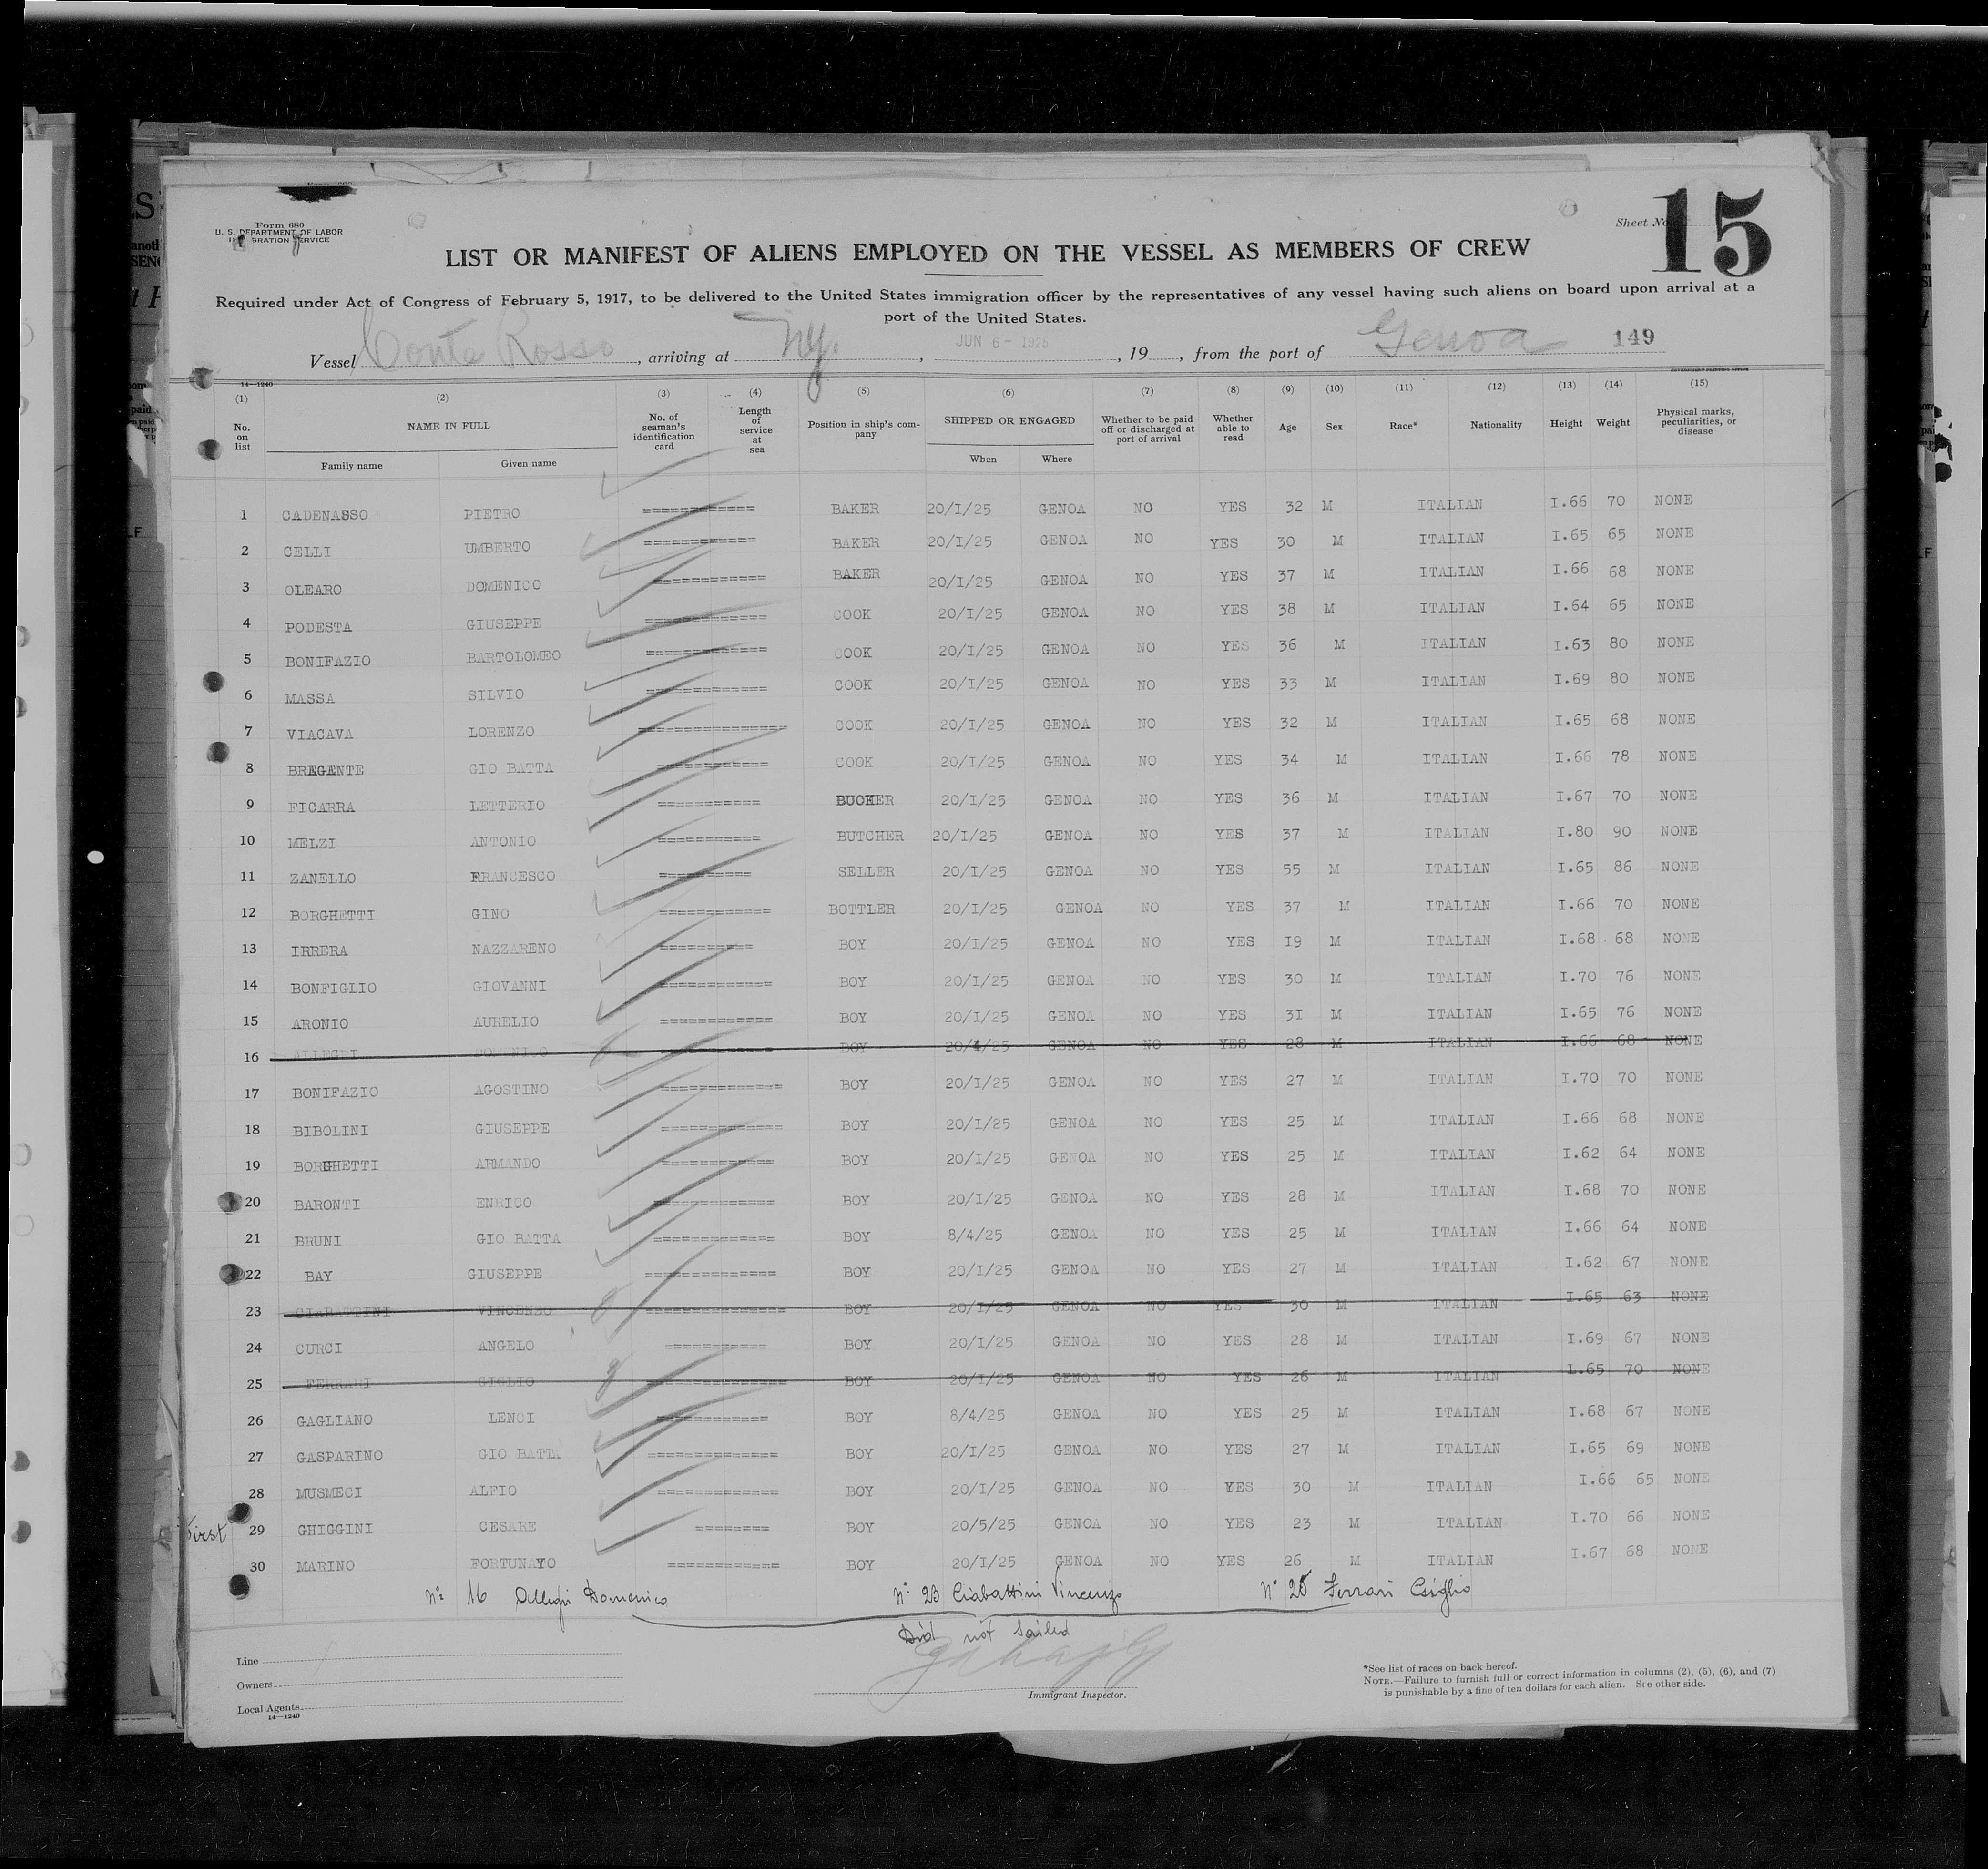 Form 680
U. S. DEPARTMENT OF LABOR
IMMIGRATION SERVICE
Sheet No. 15
LIST OR MANIFEST OF ALIENS EMPLOYED ON THE VESSEL AS MEMBERS OF CREW
Required under Act of Congress of February 5, 1917, to be delivered to the United States immigration officer by the representatives of any vessel having such aliens on board upon arrival at a
port of the United States.
Vessel Conte Rosso, arriving at Ny., JUN 6 - 1925, 19, from the port of Genoa 149
14—1240
(1) (2) (3) (4) (5) (6) (7) (8) (9) (10) (11) (12) (13) (14) (15)
No. on list NAME IN FULL No. of seaman's identification card Length of service at sea Position in ship's company SHIPPED OR ENGAGED Whether to be paid off or discharged at port of arrival Whether able to read Age Sex Race* Nationality Height Weight Physical marks, peculiarities, or disease
Family name Given name When Where
1 CADENASSO PIETRO BAKER 20/I/25 GENOA NO YES 32 M ITALIAN I.66 70 NONE
2 CELLI UMBERTO BAKER 20/I/25 GENOA NO YES 30 M ITALIAN I.65 65 NONE
3 OLEARO DOMENICO BAKER 20/I/25 GENOA NO YES 37 M ITALIAN I.66 68 NONE
4 PODESTA GIUSEPPE COOK 20/I/25 GENOA NO YES 38 M ITALIAN I.64 65 NONE
5 BONIFAZIO BARTOLOMEO COOK 20/I/25 GENOA NO YES 36 M ITALIAN I.63 80 NONE
6 MASSA SILVIO COOK 20/I/25 GENOA NO YES 33 M ITALIAN I.69 80 NONE
7 VIACAVA LORENZO COOK 20/I/25 GENOA NO YES 32 M ITALIAN I.65 68 NONE
8 BREGANTE GIO BATTA COOK 20/I/25 GENOA NO YES 34 M ITALIAN I.66 78 NONE
9 FICARRA LETTERIO 20/I/25 GENOA NO YES 36 M ITALIAN I.67 70 NONE
10 MELZI ANTONIO BUTCHER 20/I/25 GENOA NO YES 37 M ITALIAN I.80 90 NONE
11 ZANELLO FRANCESCO SELLER 20/I/25 GENOA NO YES 55 M ITALIAN I.65 86 NONE
12 BORGHETTI GINO BOTTLER 20/I/25 GENOA NO YES 37 M ITALIAN I.66 70 NONE
13 IRRERA NAZZARENO BOY 20/I/25 GENOA NO YES I9 M ITALIAN I.68 68 NONE
14 BONFIGLIO GIOVANNI BOY 20/I/25 GENOA NO YES 30 M ITALIAN I.70 76 NONE
15 ARONIO AURELIO BOY 20/I/25 GENOA NO YES 3I M ITALIAN I.65 76 NONE
16 ALLEGRI DOMENICO BOY 20/4/25 GENOA NO YES 28 M ITALIAN I.66 68 NONE
17 BONIFAZIO AGOSTINO BOY 20/I/25 GENOA NO YES 27 M ITALIAN I.70 70 NONE
18 BIBOLINI GIUSEPPE BOY 20/I/25 GENOA NO YES 25 M ITALIAN I.66 68 NONE
19 BORGHETTI ARMANDO BOY 20/I/25 GENOA NO YES 25 M ITALIAN I.62 64 NONE
20 BARONTI ENRICO BOY 20/I/25 GENOA NO YES 28 M ITALIAN I.68 70 NONE
21 BRUNI GIO BATTA BOY 8/4/25 GENOA NO YES 25 M ITALIAN I.66 64 NONE
22 BAY GIUSEPPE BOY 20/I/25 GENOA NO YES 27 M ITALIAN I.62 67 NONE
23 CIABATTINI VINCENZO BOY 20/I/25 GENOA NO YES 30 M ITALIAN I.65 63 NONE
24 CURCI ANGELO BOY 20/I/25 GENOA NO YES 28 M ITALIAN I.69 67 NONE
25 FERRARI GIGLIO BOY 20/I/25 GENOA NO YES 26 M ITALIAN I.65 70 NONE
26 GAGLIANO LENCI BOY 8/4/25 GENOA NO YES 25 M ITALIAN I.68 67 NONE
27 GASPARINO GIO BATTA BOY 20/I/25 GENOA NO YES 27 M ITALIAN I.65 69 NONE
28 MUSMECI ALFIO BOY 20/I/25 GENOA NO YES 30 M ITALIAN I.66 65 NONE
First 29 GHIGGINI CESARE BOY 20/5/25 GENOA NO YES 23 M ITALIAN I.70 66 NONE
30 MARINO FORTUNAYO BOY 20/I/25 GENOA NO YES 26 M ITALIAN I.67 68 NONE
N° 16 Allegri Domenico N° 23 Ciabattini Vincenzo N° 25 Ferrari Giglio
Did not sailed
Line
Owners
Local Agents
14—1240
Immigrant Inspector.
*See list of races on back hereof.
NOTE.—Failure to furnish full or correct information in columns (2), (5), (6), and (7)
is punishable by a fine of ten dollars for each alien. See other side.